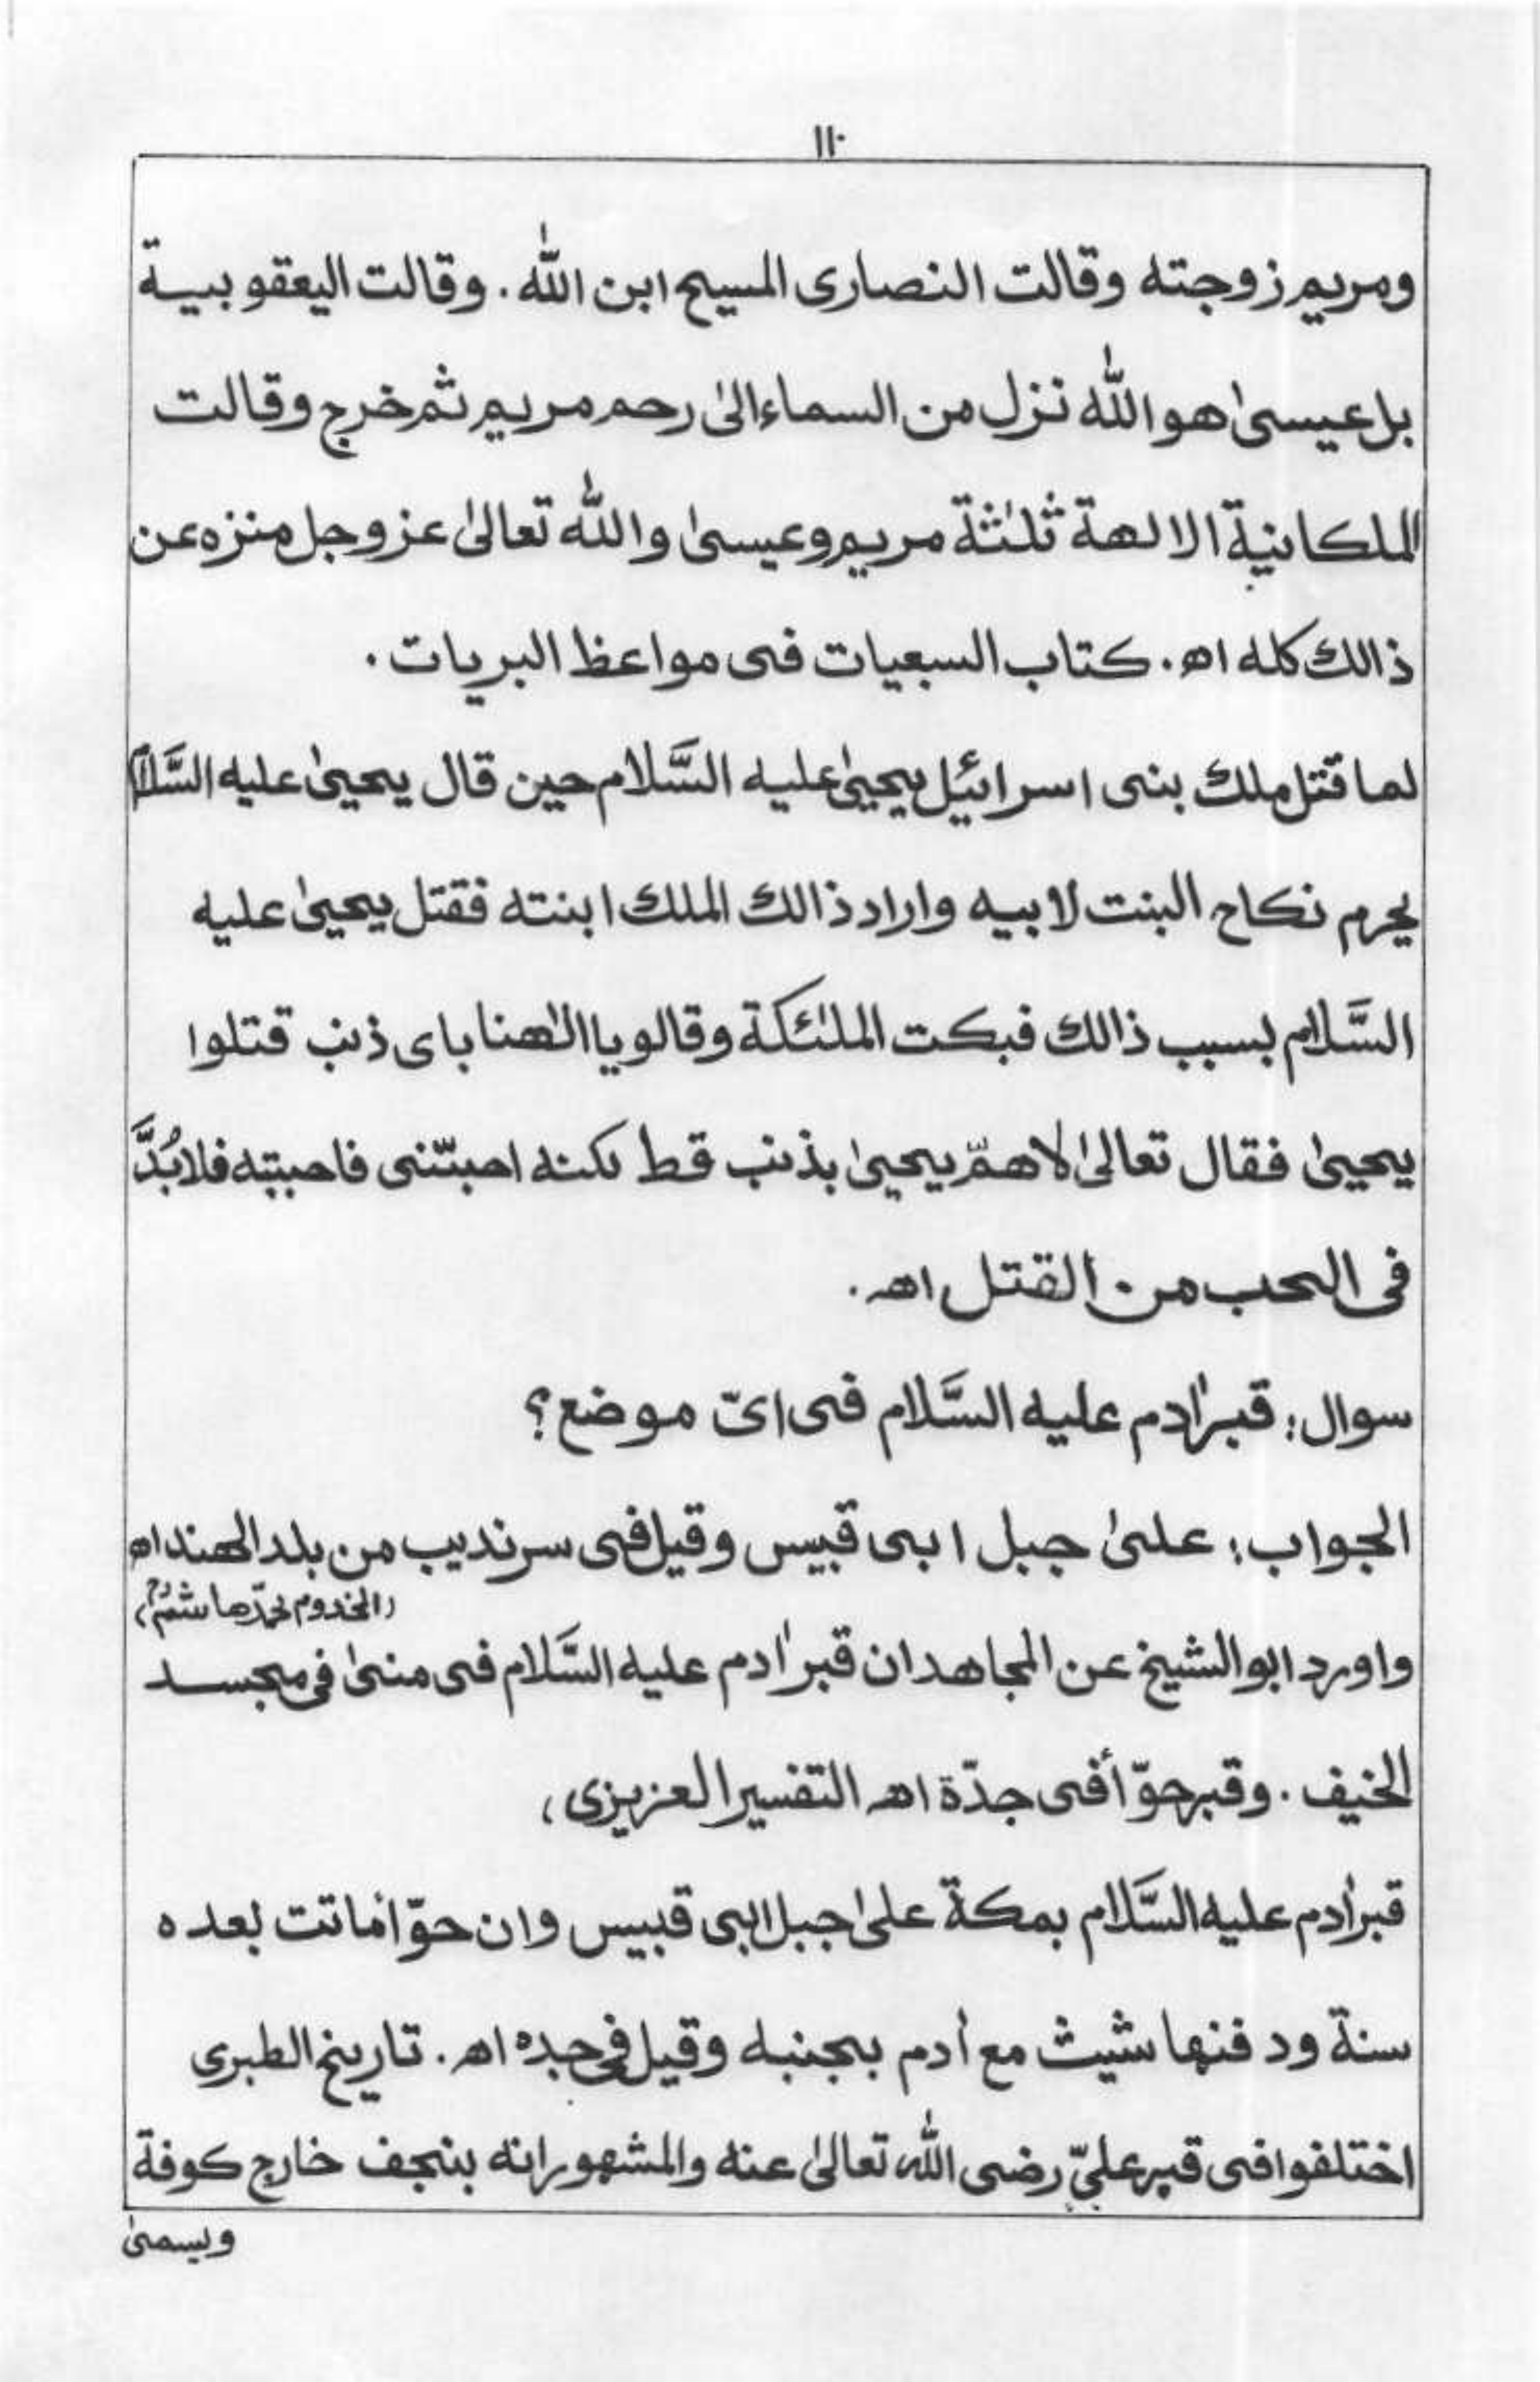 ١١٠
ومريم زوجته وقالت النصارى المسيح ابن الله . وقالت اليعقوبيية
بل عيسىٰ هو الله نزل من السماء الىٰ رحم مريم ثم خرج وقالت
الملكانية الالهة ثلٰثة مريم وعيسىٰ والله تعالىٰ عز وجل منزه عن
ذالك كله اھ . كتاب السبعيات فى مواعظ البريات .
لما قتل ملك بنى اسرائيل يحيىٰ عليه السَّلام حين قال يحيىٰ عليه السَّلام
يحرم نكاح البنت لابيه واراد ذالك الملك ابنته فقتل يحيىٰ عليه
السَّلام بسبب ذالك فبكت الملٰئكة وقالو يا الٰهنا باى ذنب قتلوا
يحيىٰ فقال تعالىٰ لاهمّ يحيىٰ بذنب قط لكنه احبتّنى فاحببته فلابُدَّ
فى الحب من القتل اھ .
سوال : قبر اٰدم عليه السَّلام فى اىّ موضع ؟
الجواب : علىٰ جبل ابى قبيس وقيل فى سرنديب من بلد الهند اھ
(المخدوم محمّد هاشمؒ)
واورد ابو الشيخ عن المجاهد ان قبر اٰدم عليه السَّلام فى منىٰ فى مجسد
الخيف . وقبر حوّ أفى جدّة اھ التفسير العزيزى ،
قبر اٰدم عليه السَّلام بمكة علىٰ جبل ابى قبيس وان حوّا ماتت بعده
سنة ودفنها شيث مع اٰدم بجنبه وقيل فى جده اھ . تاريخ الطبرى
اختلفوا فى قبر علىّ رضى الله تعالىٰ عنه والمشهور انه بنجف خارج كوفة
ويسمىٰ